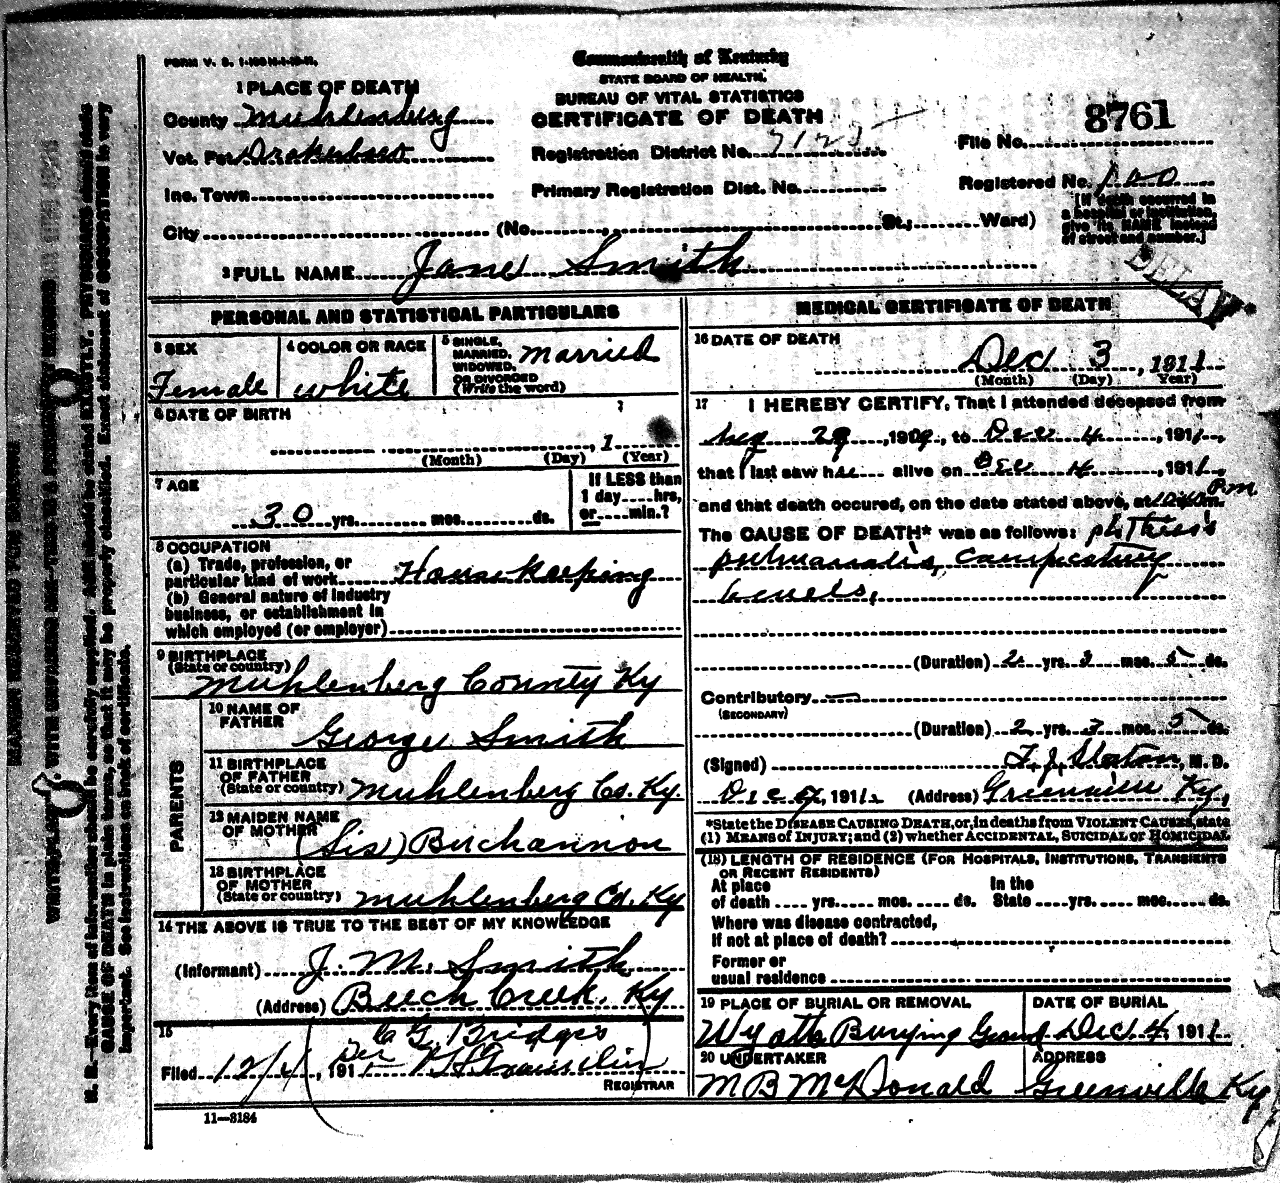 Commonwealth of Kentucky
STATE BOARD OF HEALTH.
BUREAU OF VITAL STATISTICS
CERTIFICATE OF DEATH
1 PLACE OF DEATH
County Muhlenburg
Vot. Pct Drakesboro
Inc. Town
City (No. St.; Ward)
Registration District No. 7123
Primary Registration Dist. No.
File No. 8761
Registered No. 100
[If death occurred in
a hospital or institution,
give its NAME instead
of street and number.]
DELAY
2 FULL NAME Jane Smith
PERSONAL AND STATISTICAL PARTICULARS
3 SEX
Female
4 COLOR OR RACE
white
5 SINGLE,
MARRIED,
WIDOWED,
OR DIVORCED
(Write the word)
married
6 DATE OF BIRTH
, 1
(Month) (Day) (Year)
7 AGE
30 yrs. mos. ds.
If LESS than
1 day hrs,
or min.?
8 OCCUPATION
(a) Trade, profession, or
particular kind of work House Keeping
(b) General nature of industry
business, or establishment in
which employed (or employer)
9 BIRTHPLACE
(State or country)
Muhlenberg County Ky
PARENTS
10 NAME OF
FATHER
George Smith
11 BIRTHPLACE
OF FATHER
(State or country) Muhlenberg Co. Ky.
12 MAIDEN NAME
OF MOTHER
(Sis) Buchannon
13 BIRTHPLACE
OF MOTHER
(State or country) Muhlenberg Co. Ky
14 THE ABOVE IS TRUE TO THE BEST OF MY KNOWLEDGE
(Informant) J. M. Smith
(Address) Beech Creek, Ky
15
C G. Bridges
Filed 12/4, 191 Per
REGISTRAR
11-3184
MEDICAL CERTIFICATE OF DEATH
16 DATE OF DEATH
Dec 3, 1911
(Month) (Day) (Year)
17 I HEREBY CERTIFY, That I attended deceased from
29, 1909, to Dec 4, 1911,
that I last saw her alive on Dec 4, 1911,
and that death occured, on the date stated above, at P.m.
The CAUSE OF DEATH* was as follows: phthisis
pulmonalis,
(Duration) 2 yrs. 3 mos. 5 ds.
Contributory
(SECONDARY)
(Duration) 2 yrs. 3 mos. 5 ds.
(Signed) T. J. Slaton, M. D.
Dec, 1911 (Address) Greenville Ky,
*State the DISEASE CAUSING DEATH, or, in deaths from VIOLENT CAUSES, state
(1) MEANS OF INJURY; and (2) whether ACCIDENTAL, SUICIDAL or HOMICIDAL
(18) LENGTH OF RESIDENCE (FOR HOSPITALS, INSTITUTIONS, TRANSIENTS
OR RECENT RESIDENTS)
At place In the
of death yrs. mos. ds. State yrs. mos. ds.
Where was disease contracted,
If not at place of death?
Former or
usual residence
19 PLACE OF BURIAL OR REMOVAL
Wyatt Burying Ground
DATE OF BURIAL
Dec. 4 1911
20 UNDERTAKER
M B McDonald
ADDRESS
Greenville Ky
N. B.—Every item of information should be carefully supplied. AGE should be stated EXACTLY. PHYSICIANS should state
CAUSE OF DEATH in plain terms, so that it may be properly classified. Exact statement of OCCUPATION is very
important. See instructions on back of certificate.